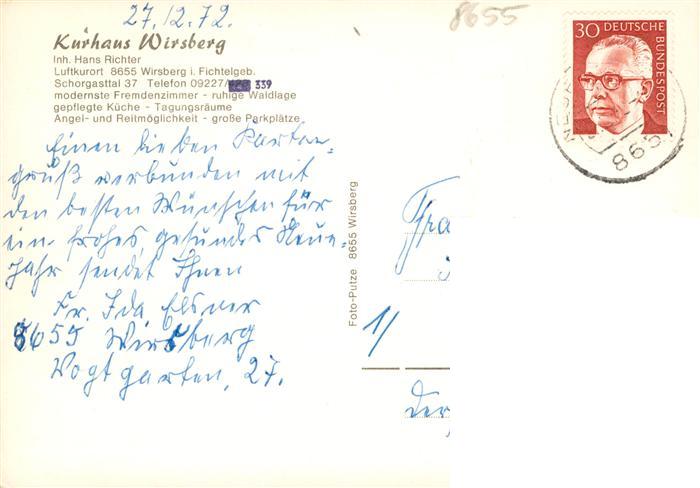 27.12.72.
8655
Kurhaus Wirsberg
Inh. Hans Richter
Luftkurort 8655 Wirsberg i. Fichtelgeb.
Schorgasttal 37 Telefon 09227/ 339
modernste Fremdenzimmer - ruhige Waldlage
gepflegte Küche - Tagungsräume
Angel- und Reitmöglichkeit - große Parkplätze
30 DEUTSCHE
BUNDESPOST
865
Einen lieben Karten-
gruß verbunden mit
den besten Wünschen für
ein frohes, gesundes Neue-
Jahr sendet Ihnen
Fr. Ida Elsner
8655 Wirsberg
Vogtgarten, 27.
Foto-Putze 8655 Wirsberg
Fra
1/
der